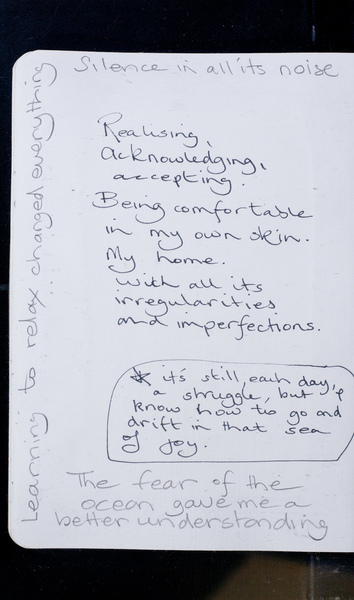 Silence in all its noise
Learning to relax changed everything
Realising,
acknowledging,
accepting.
Being comfortable
in my own skin.
My home.
with all its
irregularities
and imperfections.
* it's still, each day,
a struggle, but I
know how to go and
drift in that sea
of joy.
The fear of the
ocean gave me a
better understanding